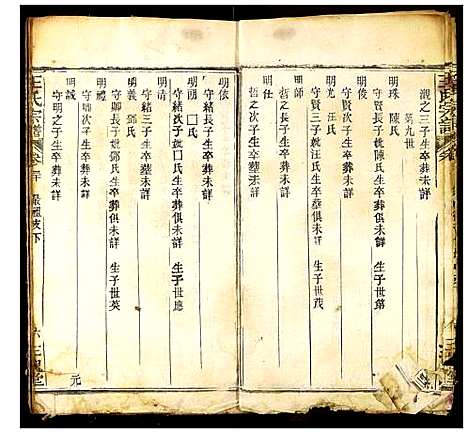 王氏宗譜
觀之三子生卒葬未詳
第九世
明珠 陳氏
守賢長子妣陳氏生卒葬俱未詳 生子世第
明俊
守賢次子生卒葬未詳
明光 汪氏
守賢三子妣汪氏生卒葬俱未詳 生子世茂
明師
哲之長子生卒葬未詳
明仕
哲之次子生卒墓未詳
明依
守緒長子生卒葬未詳
明頤 囗氏
守緒次子妣囗氏生卒葬俱未詳 生子世應
明清
守緒三子生卒墓未詳
明義 鄧氏
守卿長子妣鄧氏生卒葬俱未詳 生子世英
明
守卿次子生卒葬未詳
明誠
守明之子生卒葬未詳
元
王氏宗譜
卷
下
六